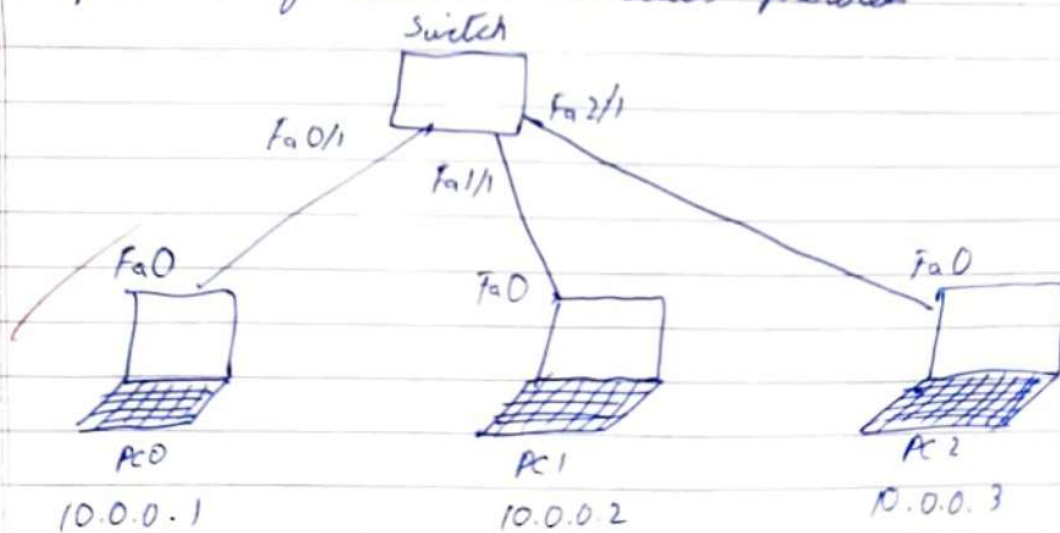 Switch
Fa0/1
Fa2/1
Fa1/1
Fa0
Fa0
Fa0
PC0
PC1
PC2
10.0.0.1
10.0.0.2
10.0.0.3